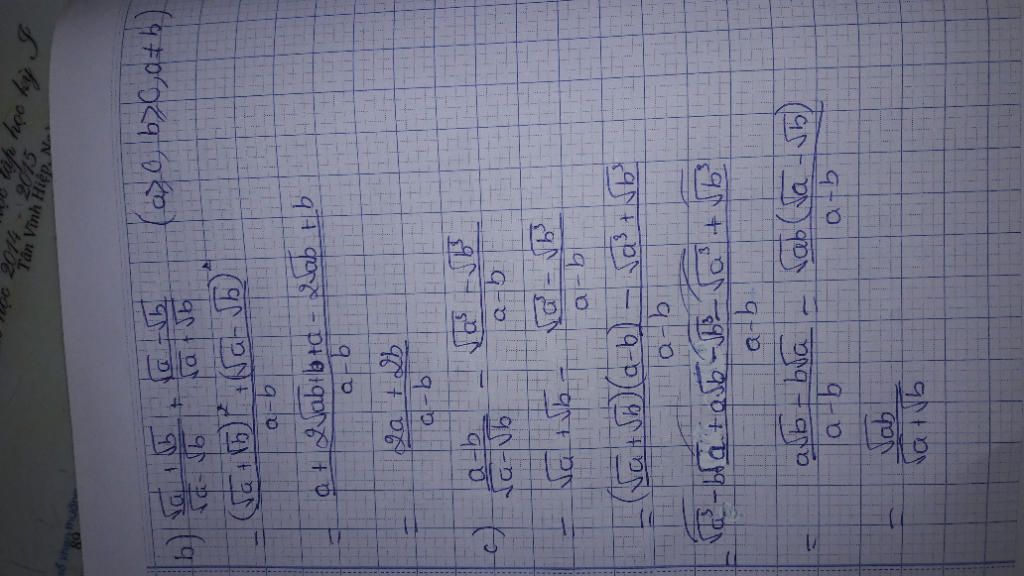 b) (√a + √b)/(√a - √b) + (√a - √b)/(√a + √b) (a ≥ 0, b ≥ 0, a ≠ b)
= ((√a + √b)² + (√a - √b)²)/(a - b)
= (a + 2√ab + b + a - 2√ab + b)/(a - b)
= (2a + 2b)/(a - b)
c) (a - b)/(√a - √b) - (√a³ - √b³)/(a - b)
= √a + √b - (√a³ - √b³)/(a - b)
= ((√a + √b)(a - b) - √a³ + √b³)/(a - b)
= (√a³ - b√a + a√b - √b³ - √a³ + √b³)/(a - b)
= (a√b - b√a)/(a - b) = (√ab(√a - √b))/(a - b)
= √ab/(√a + √b)
2014 - 2015
học kỳ I
Tân Vĩnh Hiệp
89